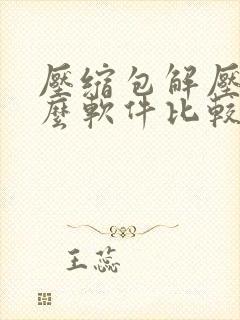 壓縮包解壓
麼軟件比較
王蕊